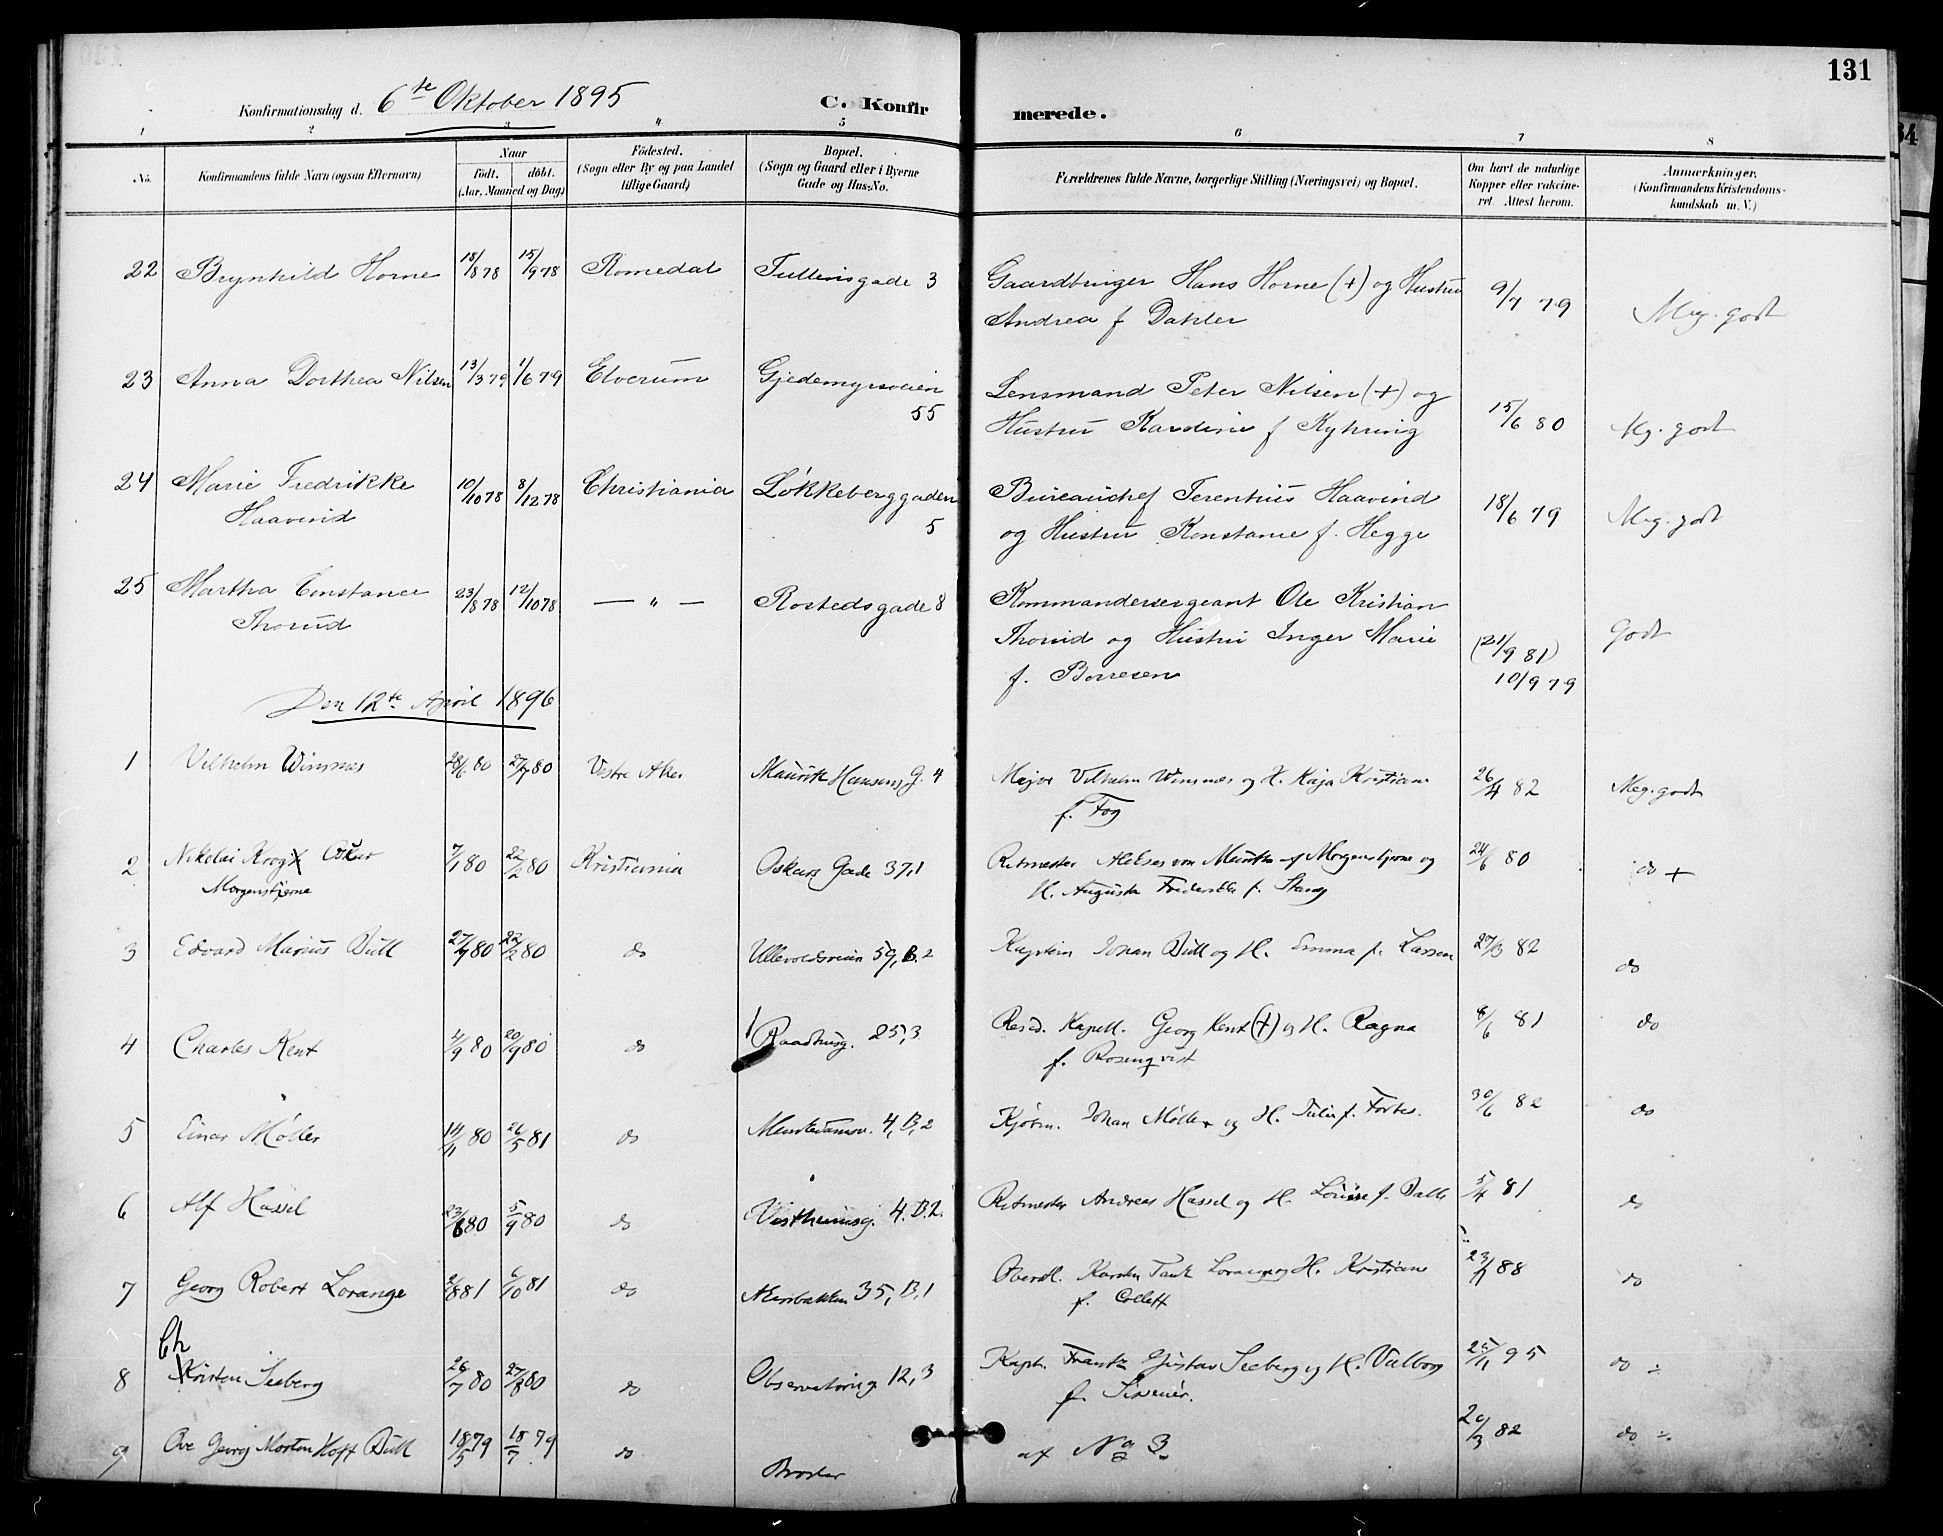 131
Konfirmationsdag d. 6te Oktober 1895 C. Konfir merede.
1 2 3 4 5 6 7 8
No. Konfirmandens fulde Navn (ogsaa Efternavn) Naar Födt. döbt. (Aar, Maaned og Dag) Födested. (Sogn eller By og paa Landet tillige Gaard) Bopæl. (Sogn og Gaard eller i Byerne Gade og Hus-No. Forældrenes fulde Navne, borgerlige Stilling (Næringsvei) og Bopæl. Om havt de naturlige Kopper eller vakcine- ret. Attest herom. Anmærkninger. (Konfirmandens Kristendoms- kundskab m. V.)
22 Brynhild Horne 18/8 78 15/9 78 Romedal Tullinsgade 3 Gaardbruger Hans Horne (+) og Hustru 9/7 79 Meg. godt
Andrea f Dahler
23 Anna Dorthea Nilsen 13/3 79 1/6 79 Elverum Gjedemyrsveien Lensmand Peter Nilsen (+) og 15/6 80 Mg. godt
55 Hustru f Kyhring
24 Marie Fredrikke 10/10 78 8/12 78 Christiania Løkkeberggaden Bureauchef Terentius Haavind 18/6 79 Meg. godt
Haavind 5 og Hustru Konstance f. Hegge
25 Martha Constance 23/8 78 12/10 78 — " — Rostedsgade 8 Kommandersergeant Ole Kristian Godt
Thorud Thorud og Hustru Inger Marie (21/9 81)
f. Borresen 10/9 79
Den 12te April 1896
1 Vilhelm Winsnes 28/6 80 27/7 80 Vestre Aker Mauritz Hansens G. 4 Major Vilhelm Winsnes og H. Kaja Kristiane 26/4 82 Meg. godt
f. Fog
2 Nikolai Krog Oskar 7/1 80 22/2 80 Kristiania Oskars Gade 37,1 Ritmester von Munthe af Morgenstjerne og 24/6 80 do +
Morgenstjerne H. Augusta Frederikke f. Stang
3 Edvard Marius Bull 27/9 80 22/2 80 do Ullevoldsveien 59, B. 2 Kaptein Johan Bull og H. Emma f. Lassen 27/3 82 do
4 Charles Kent 4/9 80 20/9 80 do Raadhusg. 25,3 Resid. Kapell. Georg Kent (+) og H. Ragna 8/6 81 do
f. Rosenqvist
5 Einar Møller 14/11 80 26/5 81 do Munkedamsv. 4, B, 2 Kjøbm. Johan Møller og H. Julie f. 30/6 82 do
6 Alf Hassel 23/6 80 5/9 80 do Vestheimsg. 4. B. 2. Ritmester Andreas Hassel og H. Louise f. 5/4 81 do
7 Georg Robert Lorange 2/8 81 6/10 81 do 35, B, 1 Oberstl. Karsten Tank Lorange og H. Kristiane 88 do
f. Collett
Ch
8 Kristen Seeberg 26/7 80 27/8 80 do Observatorieg. 12, 3 Kapt. Frantz Gustav Seeberg og H. Valborg 25/11 95 do
f.
9 Ove Georg Morten Hoff Bull 18/5 79 18/7 79 do Broder af No 3. 29/3 82 do